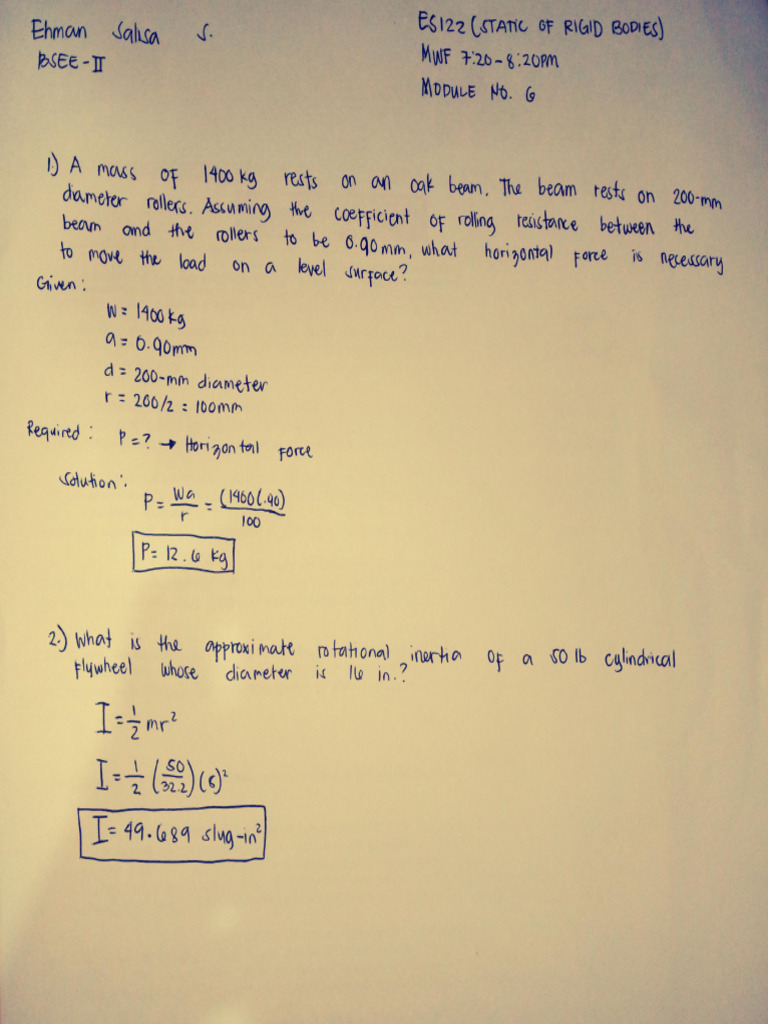 Ehman Salisa S.
BSEE-II
ES122 (STATIC OF RIGID BODIES)
MWF 7:20-8:20PM
MODULE NO. 6
1.) A mass of 1400 kg rests on an oak beam. The beam rests on 200-mm
diameter rollers. Assuming the coefficient of rolling resistance between the
beam and the rollers to be 0.90 mm, what horizontal force is necessary
to move the load on a level surface?
Given:
W = 1400 kg
a = 0.90mm
d = 200-mm diameter
r = 200/2 = 100mm
Required: P = ? → Horizontal force
Solution:
P = Wa/r = (1400(.90)/100
P = 12.6 kg
2.) What is the approximate rotational inertia of a 50 lb cylindrical
flywheel whose diameter is 16 in.?
I = 1/2 mr²
I = 1/2 (50/32.2) (8)²
I = 49.689 slug-in²